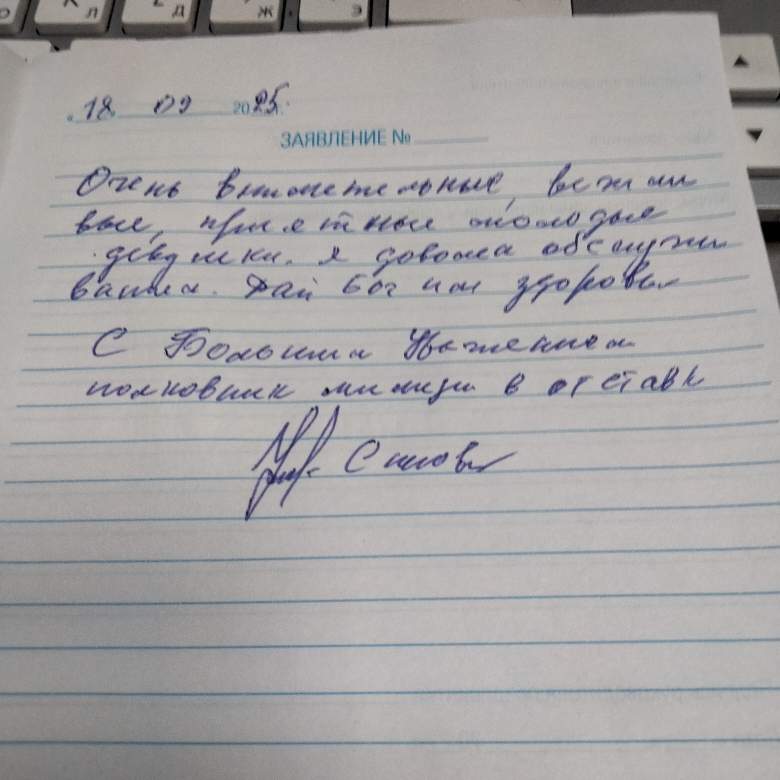 л
д
ж
э
" 18 " 09 2025 г.
ЗАЯВЛЕНИЕ №
Очень внимательные, вежли
вые, приятные молодые
девушки. Я довола обслужи
вания. Дай Бог им здоровья
С Большим Уважением
полковник милиции в отставк